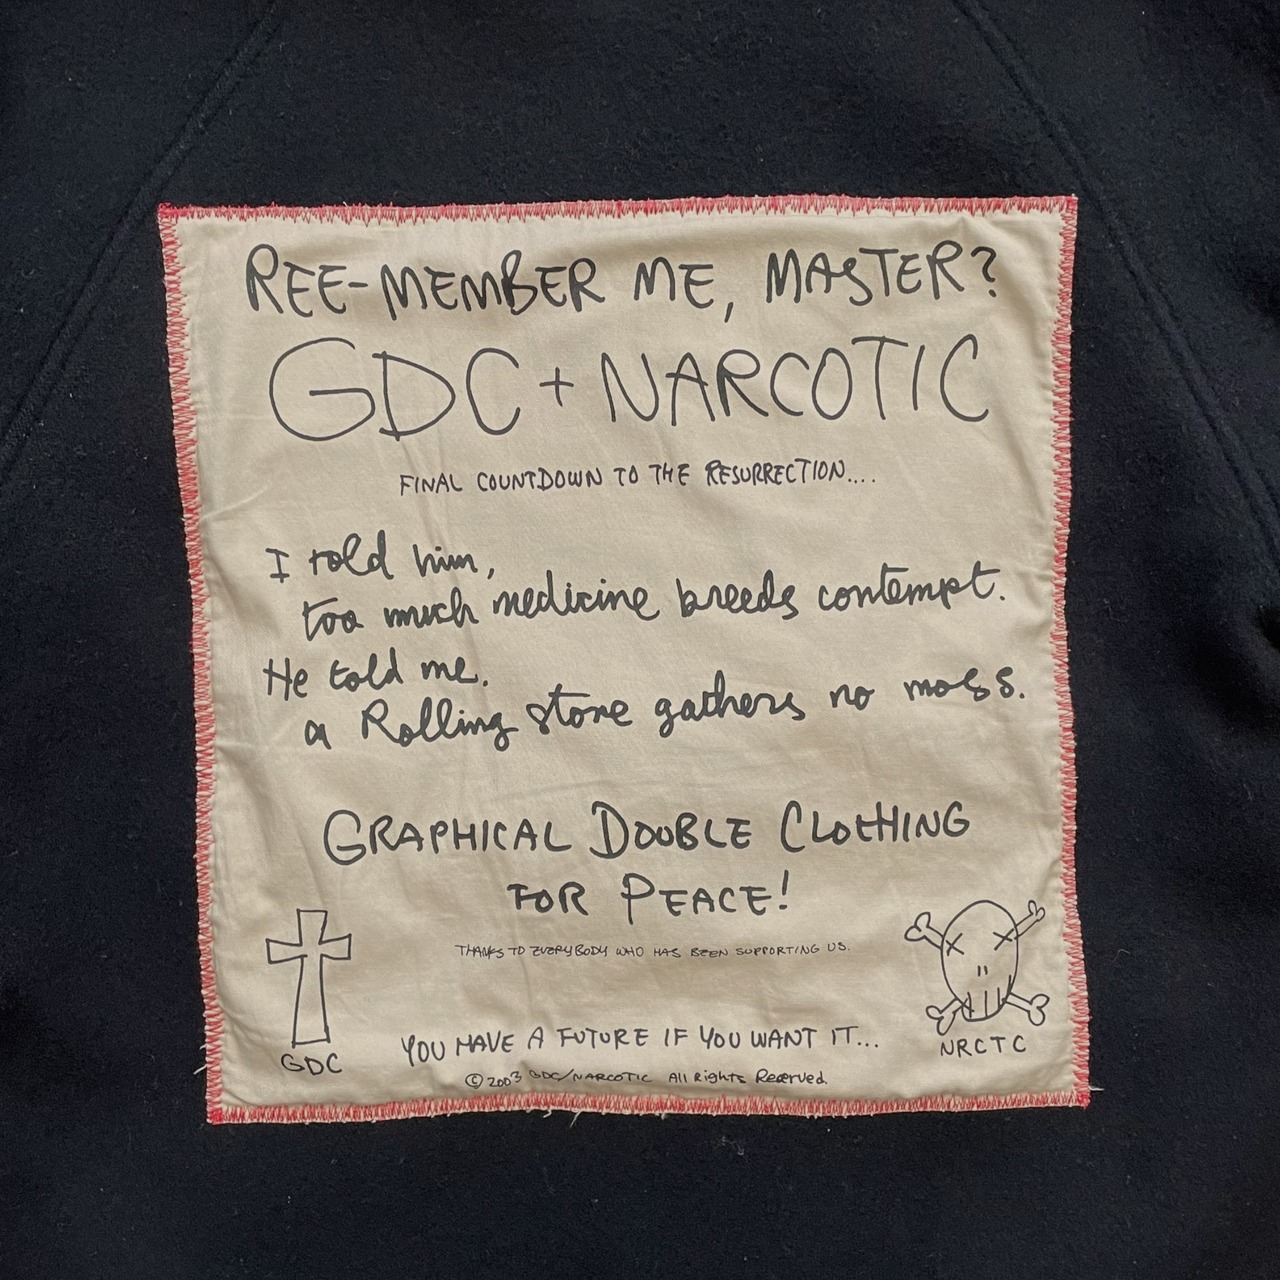 REE-MEMBER ME, MASTER?
GDC + NARCOTIC
FINAL COUNTDOWN TO THE RESURRECTION....
I told him,
too much medicine breeds contempt.
He told me.
a Rolling stone gathers no moss.
GRAPHICAL DOUBLE CLOTHING
FOR PEACE!
THANKS TO EVERYBODY WHO HAS BEEN SUPPORTING US.
YOU HAVE A FUTURE IF YOU WANT IT...
GDC
NRCTC
© 2003 GDC/NARCOTIC All Rights Reserved.